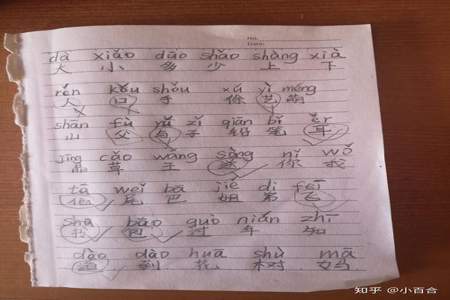 dà xiǎo duō shǎo shàng xià
大 小 多 少 上 下
rén kǒu shǒu xú yì méng
人 口 手 徐 艺 萌
shān fù yǔ zǐ qiān bǐ ěr
山 父 与 子 铅 笔 耳
jīng cǎo wáng nǐ wǒ
晶 草 王 你 我
tā wěi bā jiě dì fēi
他 尾 巴 姐 弟 飞
bāo guò nián zhī
包 过 年 知
dào dào huā shù mā
到 花 树 妈
知乎 @小百合